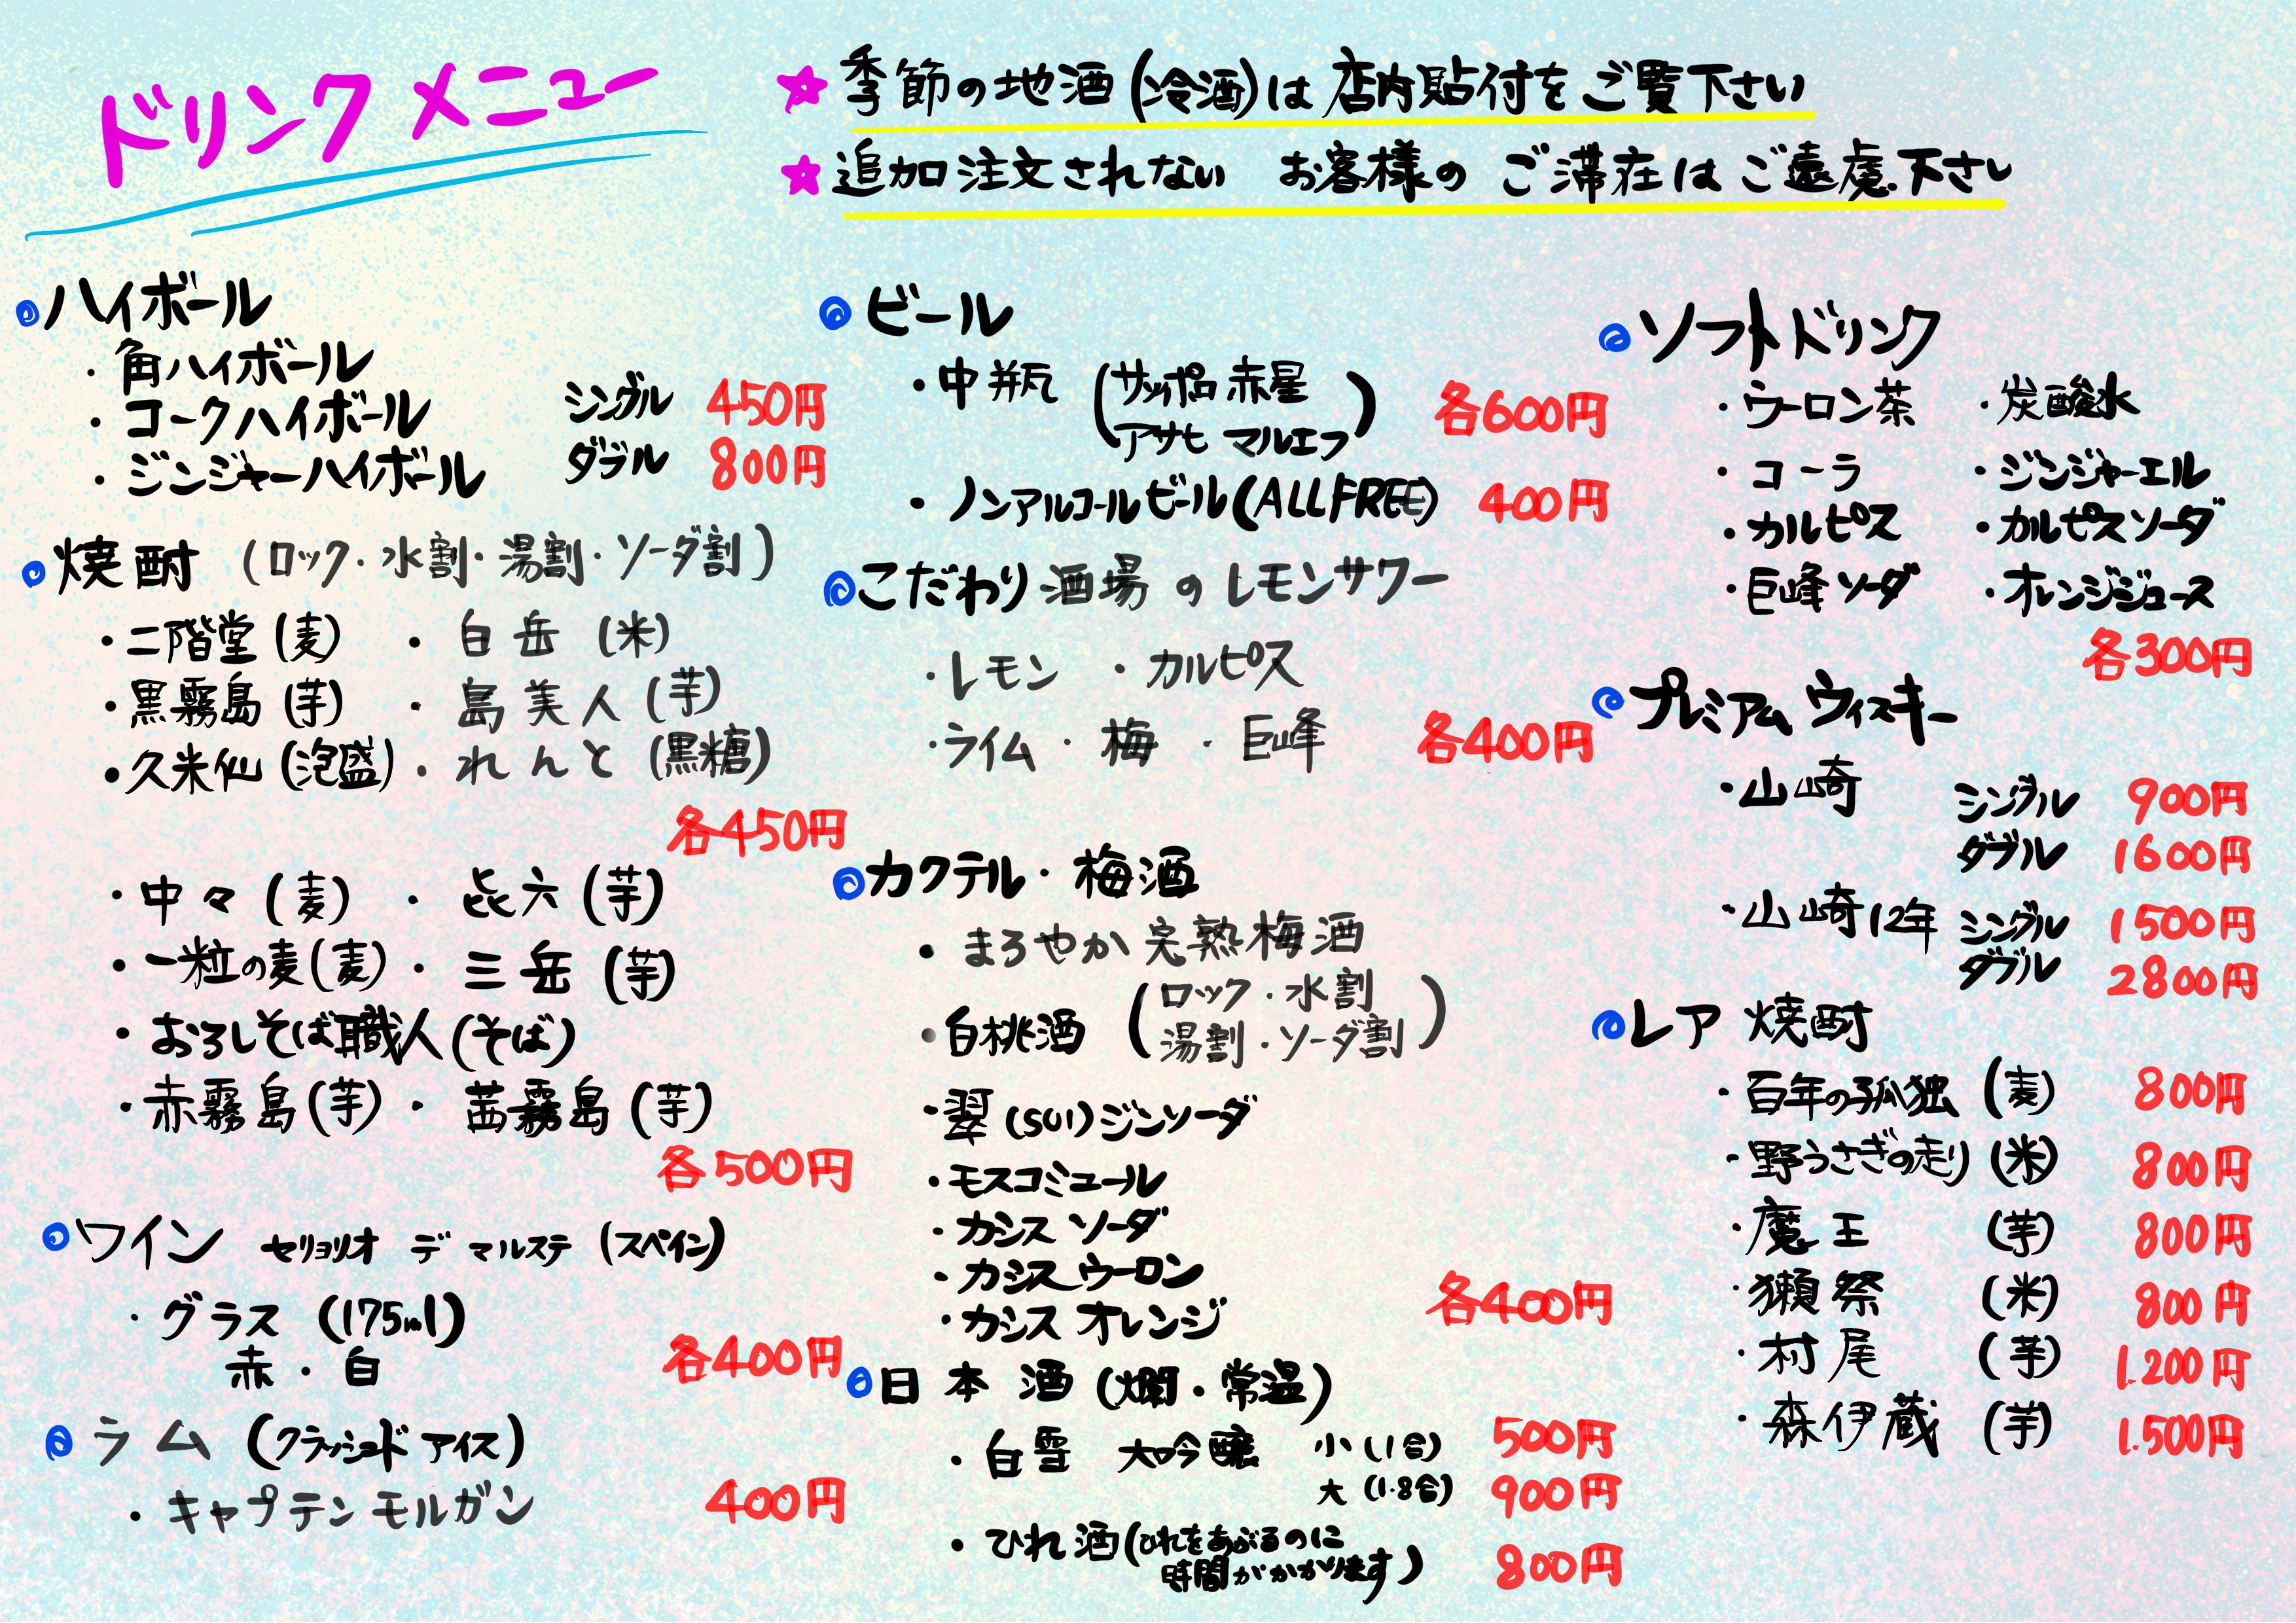 ドリンクメニュー
★季節の地酒(冷酒)は店内貼付をご覧下さい
★追加注文されない お客様の ご滞在はご遠慮下さい
ハイボール
・角ハイボール
・コークハイボール シングル 450円
・ジンジャーハイボール ダブル 800円
焼酎 (ロック・水割・湯割・ソーダ割)
・二階堂(麦) ・白岳(米)
・黒霧島(芋) ・島美人(芋)
・久米仙(泡盛) ・れんと(黒糖)
各450円
・中々(麦) ・㐂六(芋)
・一粒の麦(麦) ・三岳(芋)
・おろしそば職人(そば)
・赤霧島(芋) ・茜霧島(芋)
各500円
ワイン セリョリオ デ マルステ (スペイン)
・グラス (175ml)
赤・白 各400円
ラム (クラッシュド アイス)
・キャプテン モルガン 400円
ビール
・中瓶 (サッポロ赤星
アサヒ マルエフ) 各600円
・ノンアルコールビール(ALLFREE) 400円
こだわり酒場のレモンサワー
・レモン ・カルピス
・ライム ・梅 ・巨峰 各400円
カクテル・梅酒
・まろやか完熟梅酒
・白桃酒 (ロック・水割
湯割・ソーダ割)
・翠(SUI)ジンソーダ
・モスコミュール
・カシス ソーダ
・カシス ウーロン
・カシス オレンジ 各400円
日本酒(燗・常温)
・白雪 大吟醸 小(1合) 500円
大(1.8合) 900円
・ひれ酒(ひれをあぶるのに
時間がかかります) 800円
ソフトドリンク
・ウーロン茶 ・炭酸水
・コーラ ・ジンジャーエル
・カルピス ・カルピスソーダ
・巨峰ソーダ ・オレンジジュース
各300円
プレミアム ウィスキー
・山崎 シングル 900円
ダブル 1600円
・山崎12年 シングル 1500円
ダブル 2800円
レア 焼酎
・百年の孤独 (麦) 800円
・野うさぎの走り (米) 800円
・魔王 (芋) 800円
・獺祭 (米) 800円
・村尾 (芋) 1.200円
・森伊蔵 (芋) 1.500円